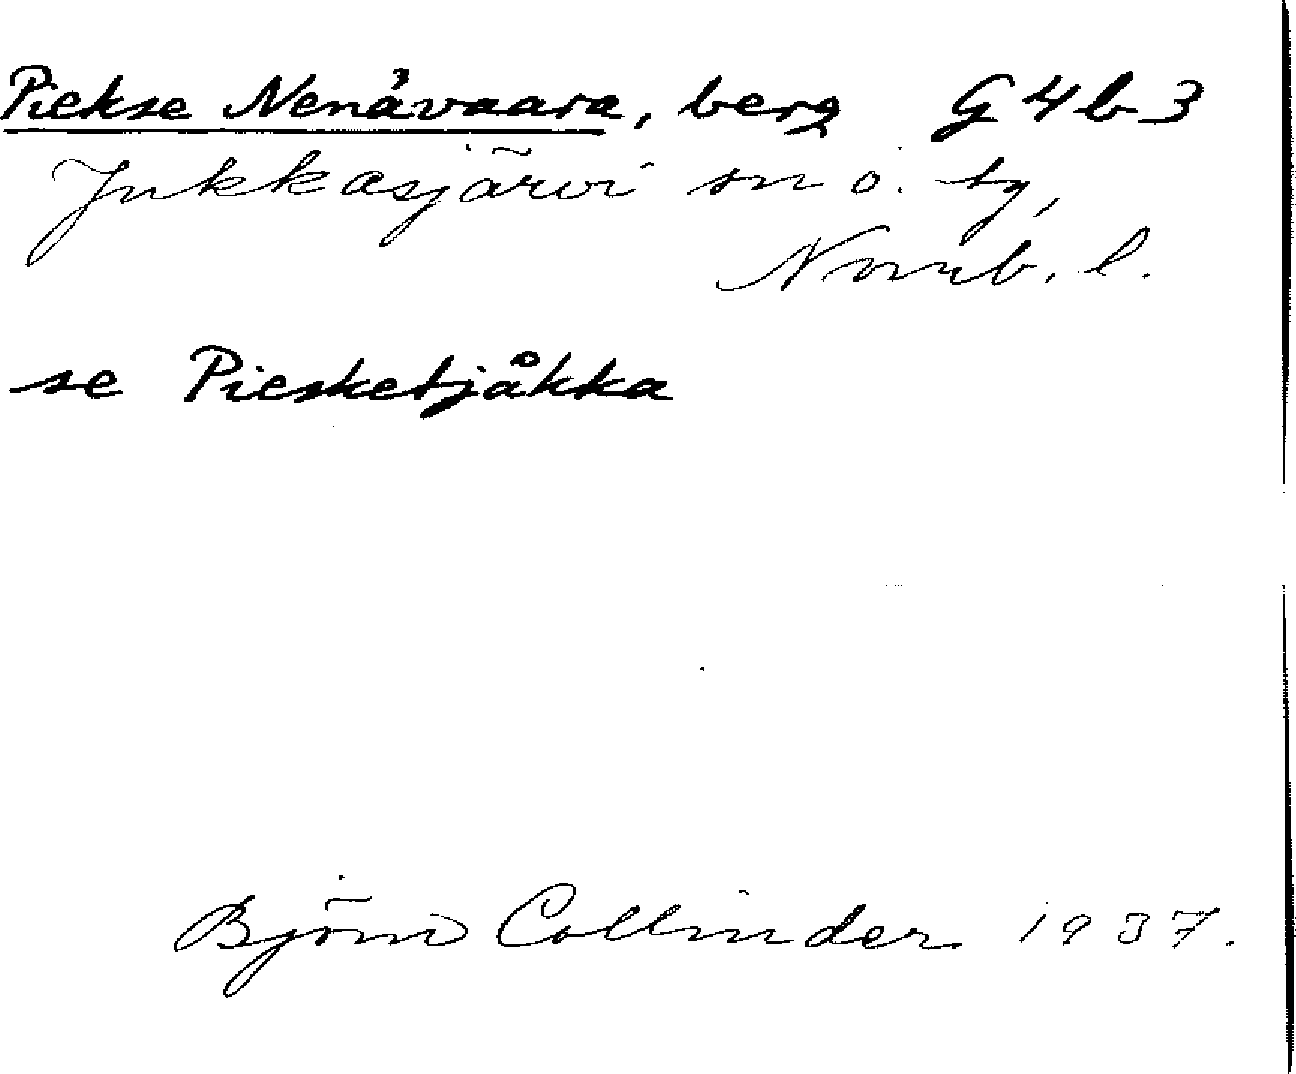 Piekse Nenävaara, berg G 4 b 3
Jukkasjärvi sn o. tg,
Norrb. l.
se Piesketjåkka
Björn Collinder 1937.